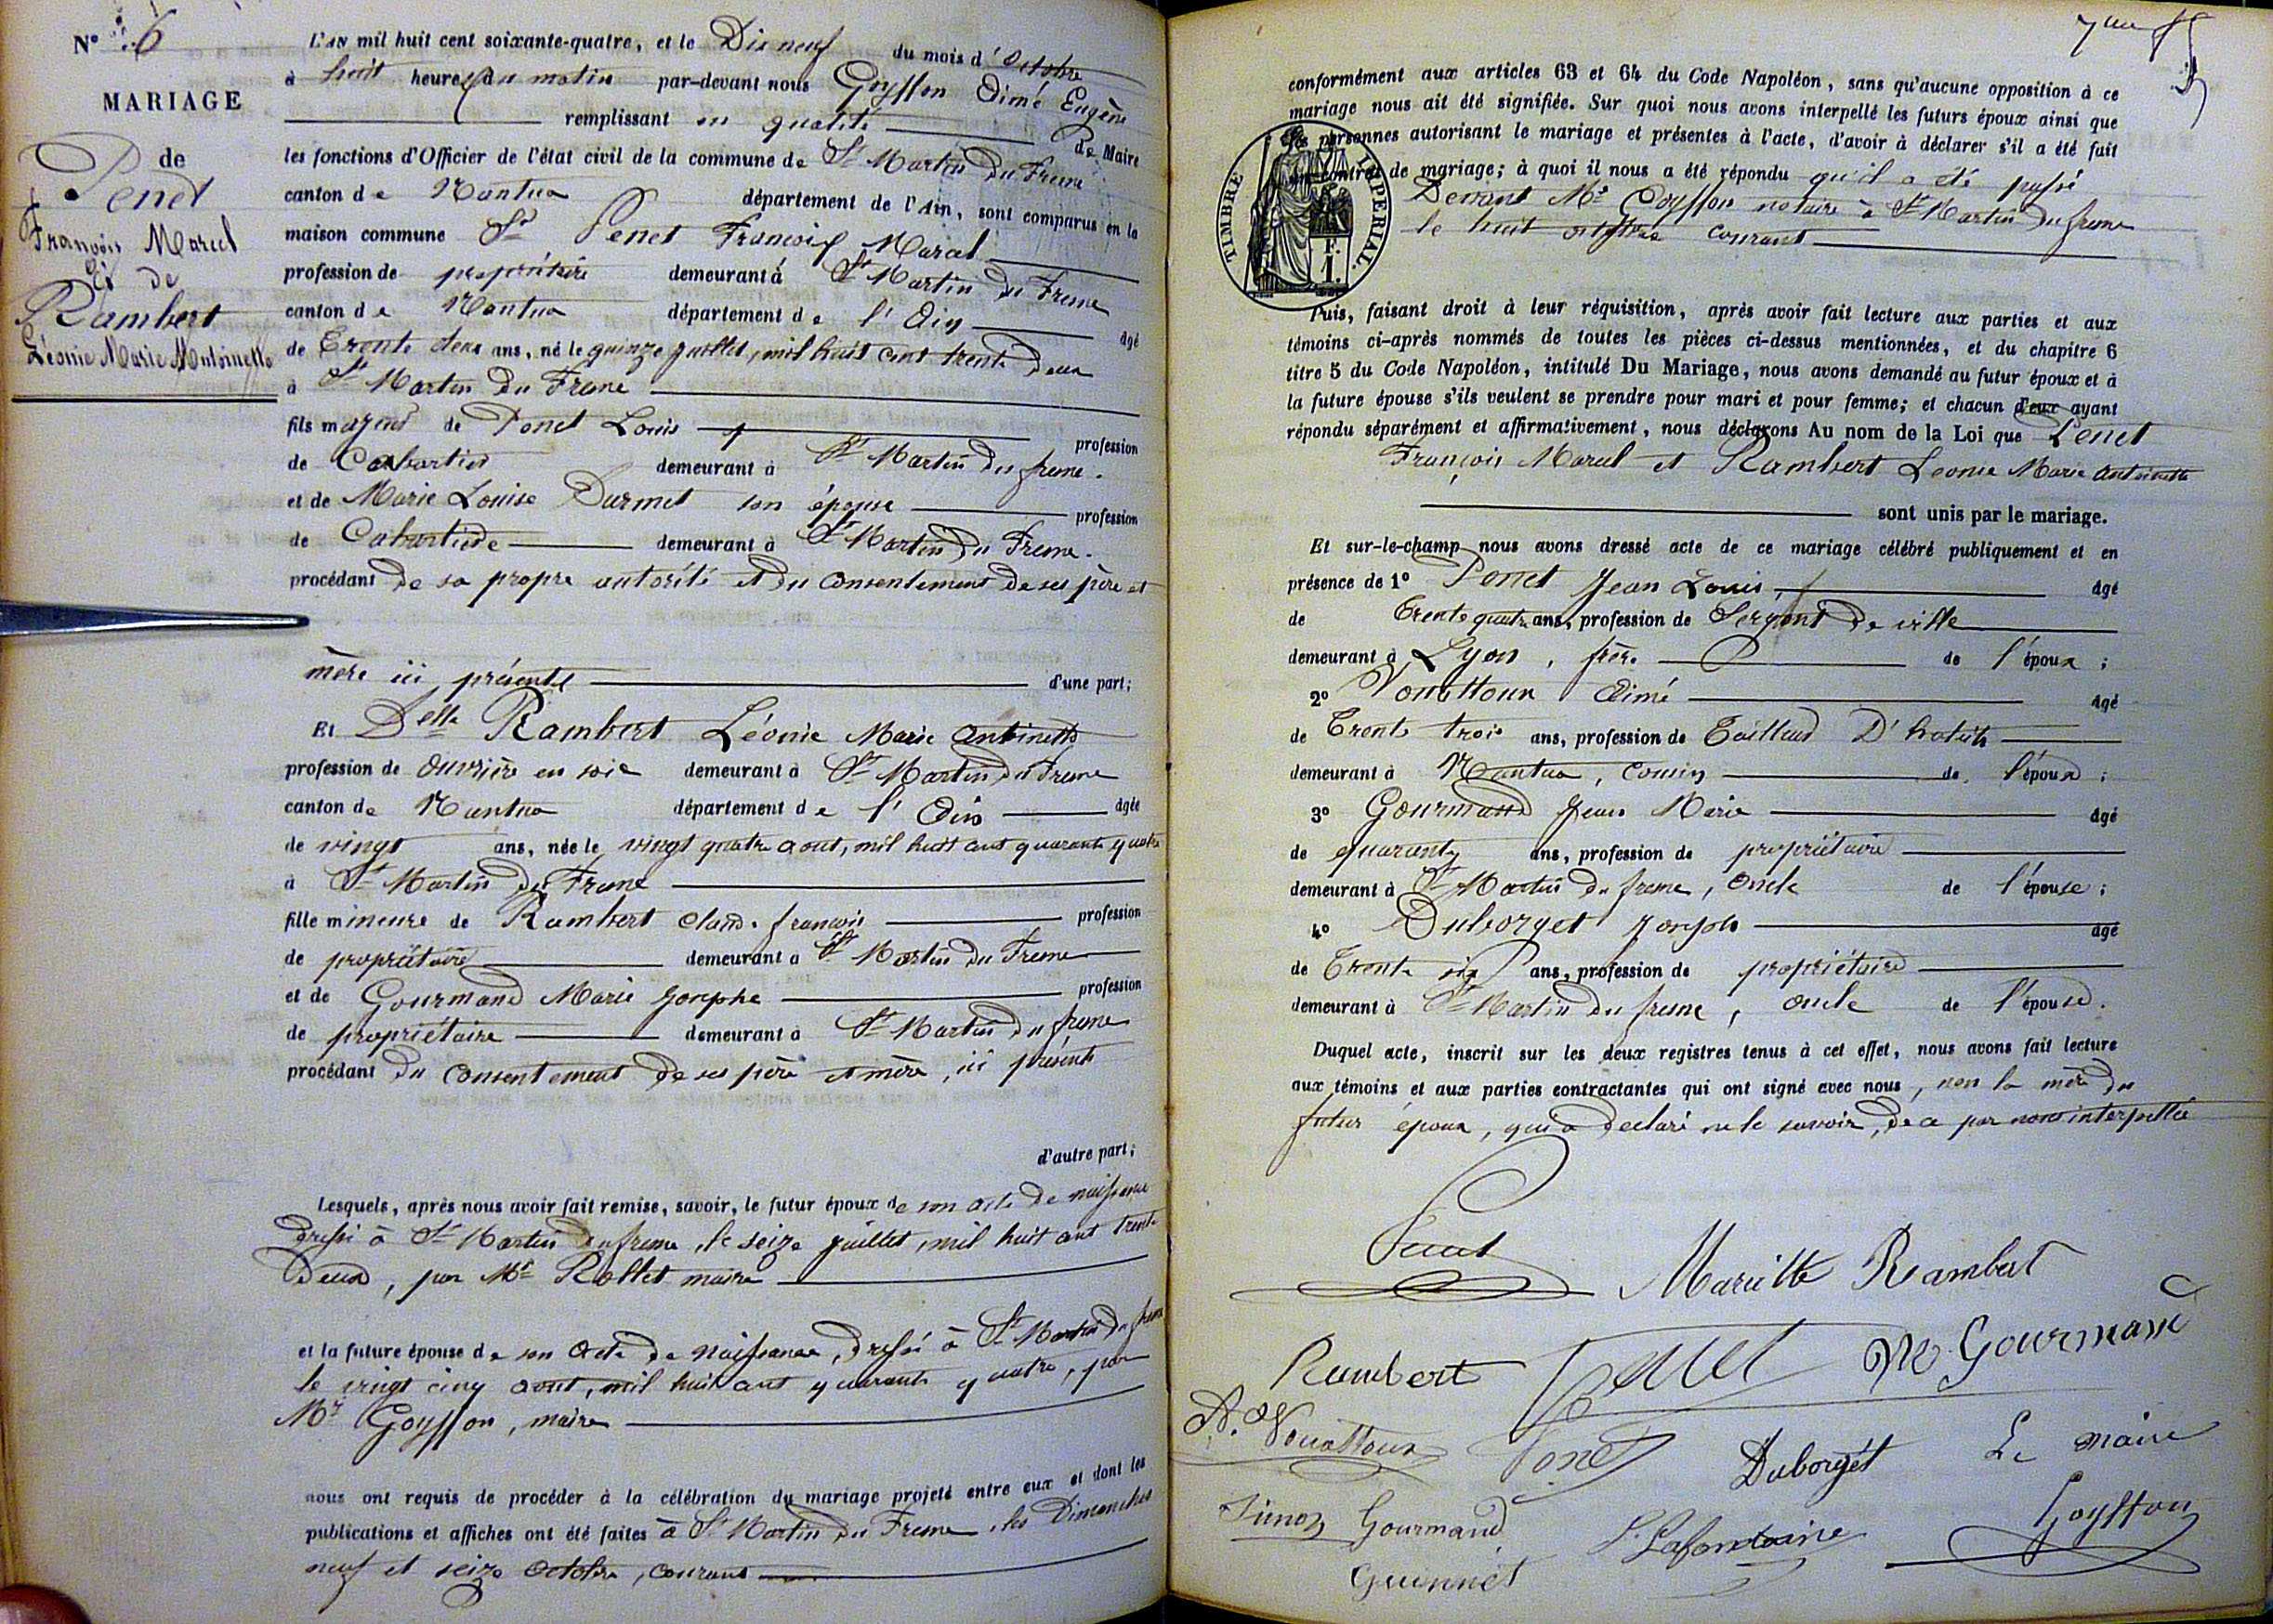 N° 6
MARIAGE
de
Penet
François Marcel
Et de
Rambert
Léonie Marie Antoinette
L'AN mil huit cent soixante-quatre, et le Dix neuf du mois d'Octobre
à huit heures du matin par-devant nous Goyffon Aimé Eugène
remplissant en qualité de Maire
les fonctions d'Officier de l'état civil de la commune de St Martin du Frene
canton de Nantua département de l'Ain, sont comparus en la
maison commune Sr Penet François Marcel
profession de propriétaire demeurant à St Martin du Frene
canton de Nantua département de l'Ain âgé
de Trente deux ans, né le quinze juillet, mil huit cent trente deux
à St Martin du Frene
fils majeur de Ponet Louis profession
de Cabartier demeurant à St Martin du frene.
et de Marie Louise Durmet son épouse profession
de Cabartière demeurant à St Martin du Frene.
procédant de sa propre autorité et du consentement de ses père et
mère ici présents d'une part;
Et Delle Rambert Léonie Marie Antoinette
profession de Ouvrière en soie demeurant à St Martin du Frene
canton de Nantua département de l'Ain âgée
de vingt ans, née le vingt quatre aout, mil huit cent quarante quatre
à St Martin du Frene
fille mineure de Rambert Claude françois profession
de propriétaire demeurant à St Martin du Frene
et de Gourmand Marie Josephe profession
de propriétaire demeurant à St Martin du frene
procédant du consentement de ses père et mère, ici présents
d'autre part;
Lesquels, après nous avoir fait remise, savoir, le futur époux de son acte de naissance
dressé à St Martin du frene, le seize juillet, mil huit cent trente
deux, par Mr Rollet maire
et la future épouse de son acte de naissance, dressé à St Martin du frene
le vingt cinq aout, mil huit cent quarante quatre, par
Mr Goyffon, maire
nous ont requis de procéder à la célébration du mariage projeté entre eux et dont les
publications et affiches ont été faites à St Martin du Frene, les Dimanches
neuf et seize Octobre, courant
conformément aux articles 63 et 64 du Code Napoléon, sans qu'aucune opposition à ce
mariage nous ait été signifiée. Sur quoi nous avons interpellé les futurs époux ainsi que
les personnes autorisant le mariage et présentes à l'acte, d'avoir à déclarer s'il a été fait
un contrat de mariage; à quoi il nous a été répondu qu'il a été passé
Devant Me Goyffon notaire à St Martin du frene
le huit octobre courant
TIMBRE IMPERIAL.
1 F.
Puis, faisant droit à leur réquisition, après avoir fait lecture aux parties et aux
témoins ci-après nommés de toutes les pièces ci-dessus mentionnées, et du chapitre 6
titre 5 du Code Napoléon, intitulé Du Mariage, nous avons demandé au futur époux et à
la future épouse s'ils veulent se prendre pour mari et pour femme; et chacun d'eux ayant
répondu séparément et affirmativement, nous déclarons Au nom de la Loi que Penet
François Marcel et Rambert Leonie Marie Antoinette
sont unis par le mariage.
Et sur-le-champ nous avons dressé acte de ce mariage célébré publiquement et en
présence de 1° Ponet Jean Louis âgé
de Trente quatre ans, profession de Sergent de ville
demeurant à Lyon, frère de l'époux;
2° Vouattoux Aimé âgé
de Trente trois ans, profession de Tailleur D'habits
demeurant à Nantua, cousin de l'époux;
3° Gourmand Jean Marie âgé
de quarante ans, profession de propriétaire
demeurant à St Martin du frene, oncle de l'épouse;
4° Duborget Joseph âgé
de Trente six ans, profession de propriétaire
demeurant à St Martin du frene, oncle de l'épouse.
Duquel acte, inscrit sur les deux registres tenus à cet effet, nous avons fait lecture
aux témoins et aux parties contractantes qui ont signé avec nous, non la mère du
futur époux, qui a déclaré ne le savoir, de ce par nous interpellée
Penet
Mariette Rambert
Rambert Penet M Gourmand
A. Vouattoux Ponet Duborgét Le maire
Simon Gourmand Lafontaine Goyffon
Guinnet